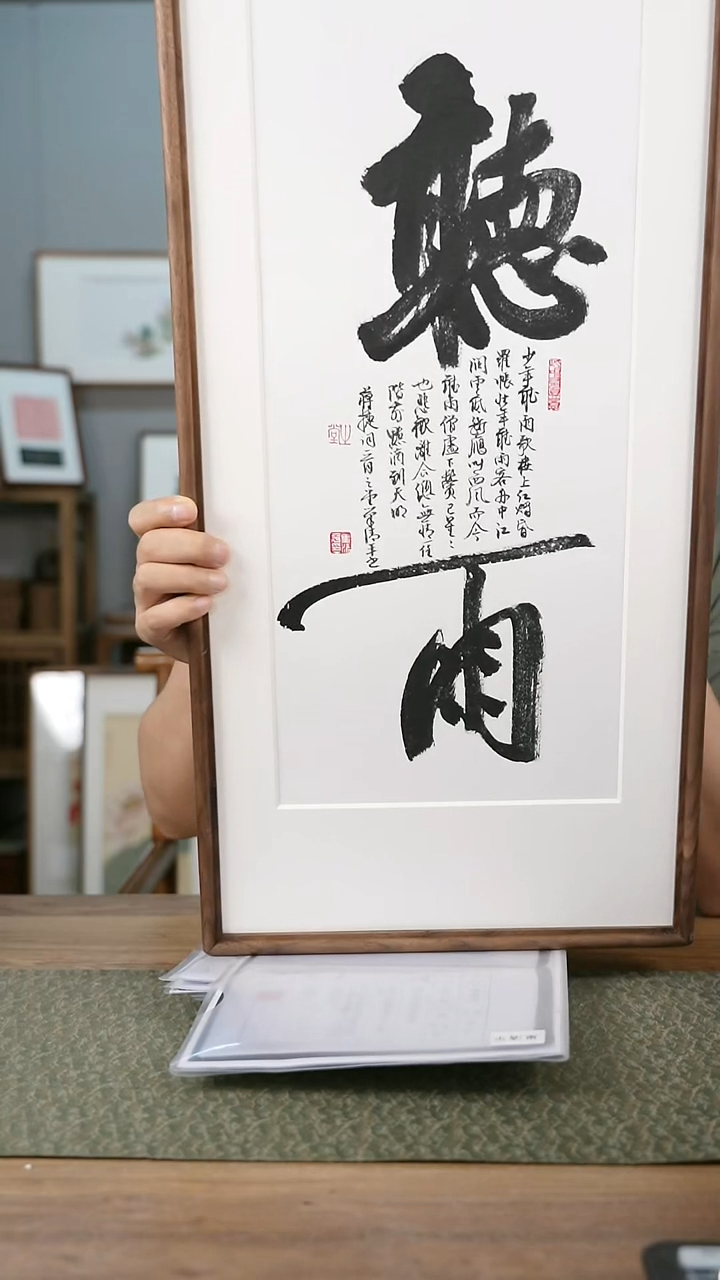 聽雨
少年聽雨歌樓上紅燭昏
羅帳壯年聽雨客舟中江
闊雲低斷雁叫西風而今
聽雨僧廬下鬢已星々
也悲歡離合總無情任
階前點滴到天明
蔣捷詞一首